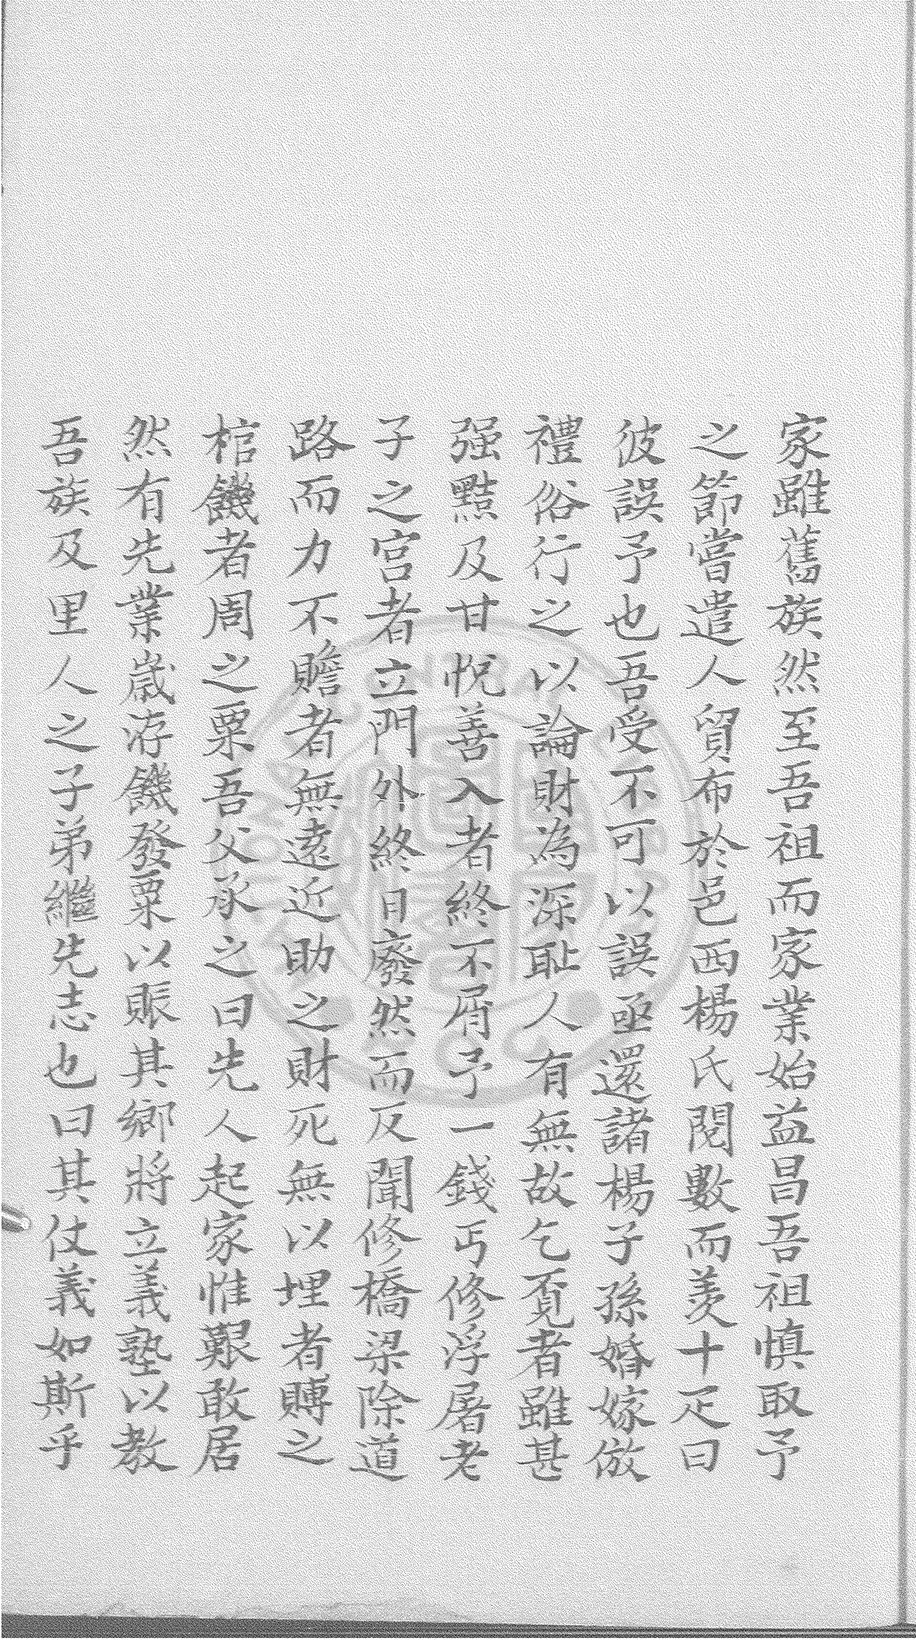 家雖舊族然至吾祖而家業始益昌吾祖慎取予
之節嘗遣人貿布於邑西楊氏閱數而羨十疋曰
彼誤予也吾受不可以誤亟還諸楊子孫婚嫁倣
禮俗行之以論財為深耻人有無故乞覔者雖甚
强黠及甘悅善入者終不屑予一錢丐修浮屠老
子之宮者立門外終日廢然而反聞修橋梁除道
路而力不贍者無遠近助之財死無以埋者賻之
棺饑者周之粟吾父承之曰先人起家惟艱敢居
然有先業歲洊饑發粟以賑其鄉將立義塾以教
吾族及里人之子弟繼先志也曰其仗義如斯乎